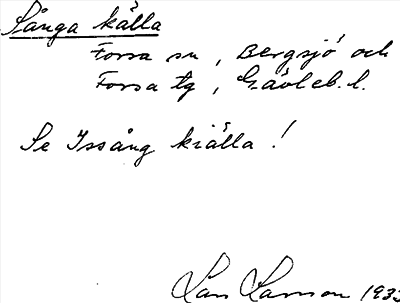 Sånga källa
Forsa sn, Bergsjö och
Forsa tg, Gävleb. l.
Se Issång kiälla!
Lars Larsson 1933